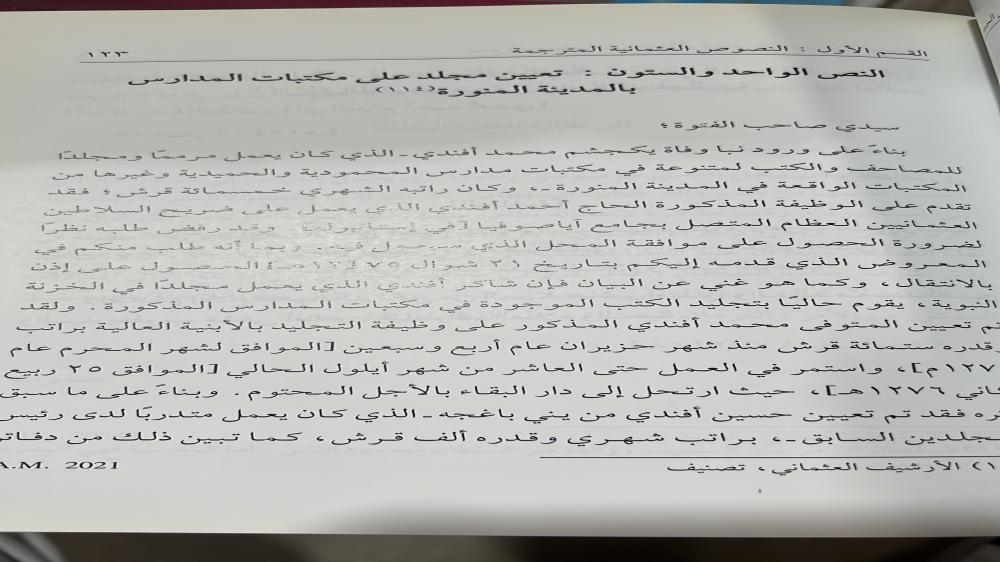 القسم الأول : النصوص العثمانية المترجمة ١٢٣
النص الواحد والستون : تعيين مجلد على مكتبات المدارس
بالمدينة المنورة(١١٤)
سيدي صاحب الفتوة؛
بناءً على ورود نبا وفاة يكجشم محمد أفندي -الذي كان يعمل مرممًا ومجلدًا
للمصاحف والكتب لمتنوعة في مكتبات مدارس المحمودية والحميدية وغيرها من
المكتبات الواقعة في المدينة المنورة-، وكان راتبه الشهري خمسمائة قرش؛ فقد
تقدم على الوظيفة المذكورة الحاج أحمد أفندي الذي يعمل على ضريح السلاطين
العثمانيين العظام المتصل بجامع آياصوفيا [في إستانبول]. وقد رفض طلبه نظرًا
لضرورة الحصول على موافقة المحل الذي سيحول فيه. وبما أنه طلب منكم في
المعروض الذي قدمه إليكم بتاريخ ٢١ شوال ١٢٧٥هـ] الحصول على إذن
بالانتقال، وكما هو غني عن البيان فإن شاكر أفندي الذي يعمل مجلدًا في الخزنة
النبوية، يقوم حاليًا بتجليد الكتب الموجودة في مكتبات المدارس المذكورة. ولقد
تم تعيين المتوفى محمد أفندي المذكور على وظيفة التجليد بالأبنية العالية براتب
وقدره ستمائة قرش منذ شهر حزيران عام أربع وسبعين [الموافق لشهر المحرم عام
١٢٧م]، واستمر في العمل حتى العاشر من شهر أيلول الحالي [الموافق ٢٥ ربيع
ثاني ١٢٧٦هـ]، حيث ارتحل إلى دار البقاء بالأجل المحتوم. وبناءً على ما سبق
ره فقد تم تعيين حسين أفندي من يني باغجه -الذي كان يعمل متدربًا لدى رئيس
جلدين السابق-، براتب شهري وقدره ألف قرش، كما تبين ذلك من دفاتر
١) الأرشيف العثماني، تصنيف A.M. 2021